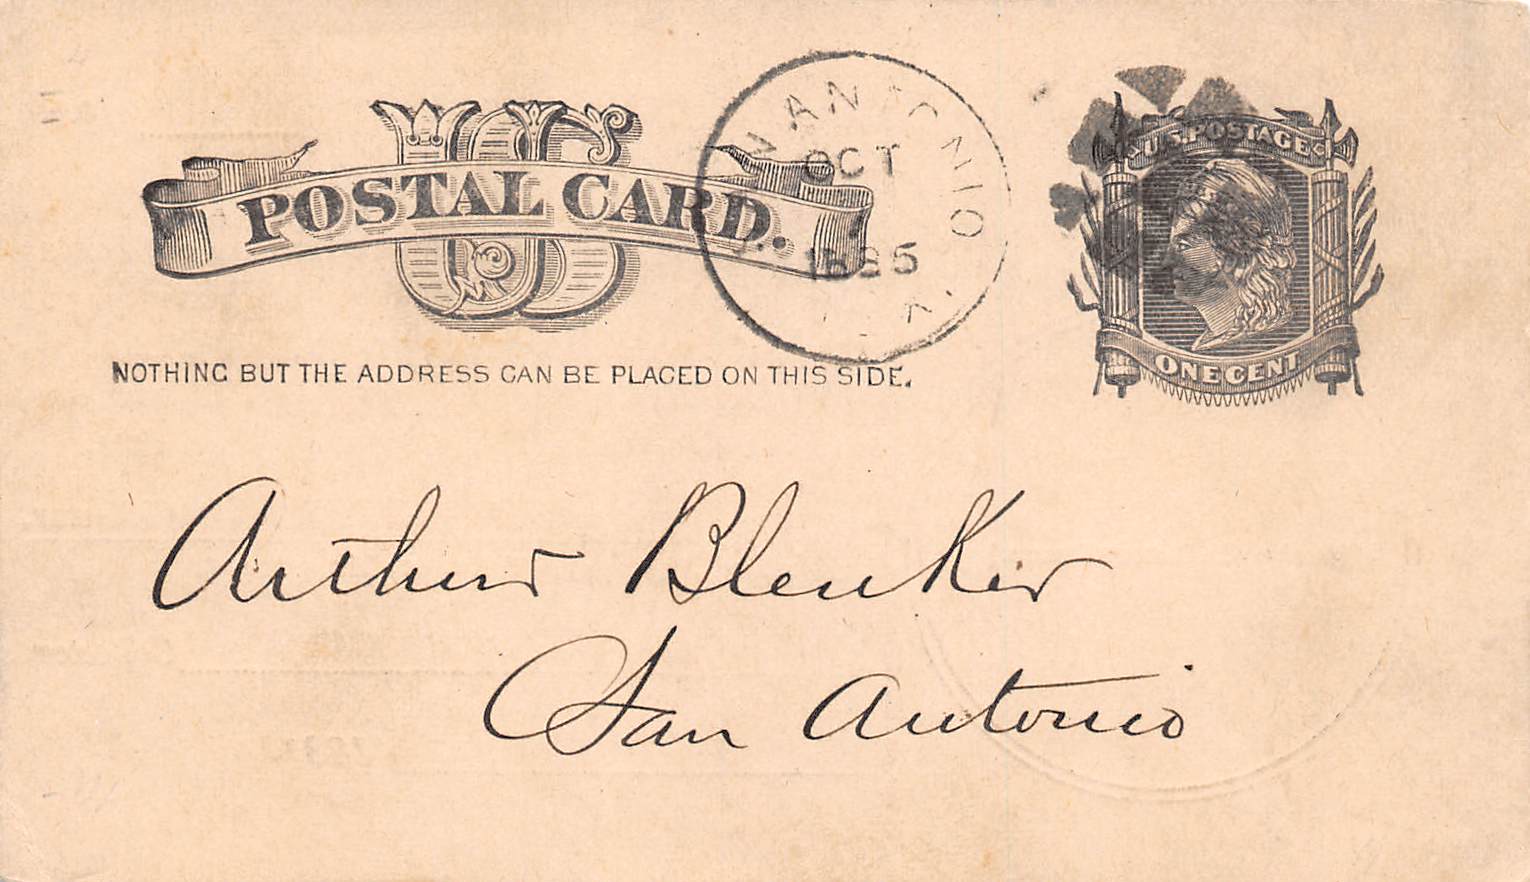 US
POSTAL CARD.
SAN ANTONIO
OCT
1885
TEX.
U.S. POSTAGE
ONE CENT
NOTHING BUT THE ADDRESS CAN BE PLACED ON THIS SIDE.
Arthur Blenker
San Antonio